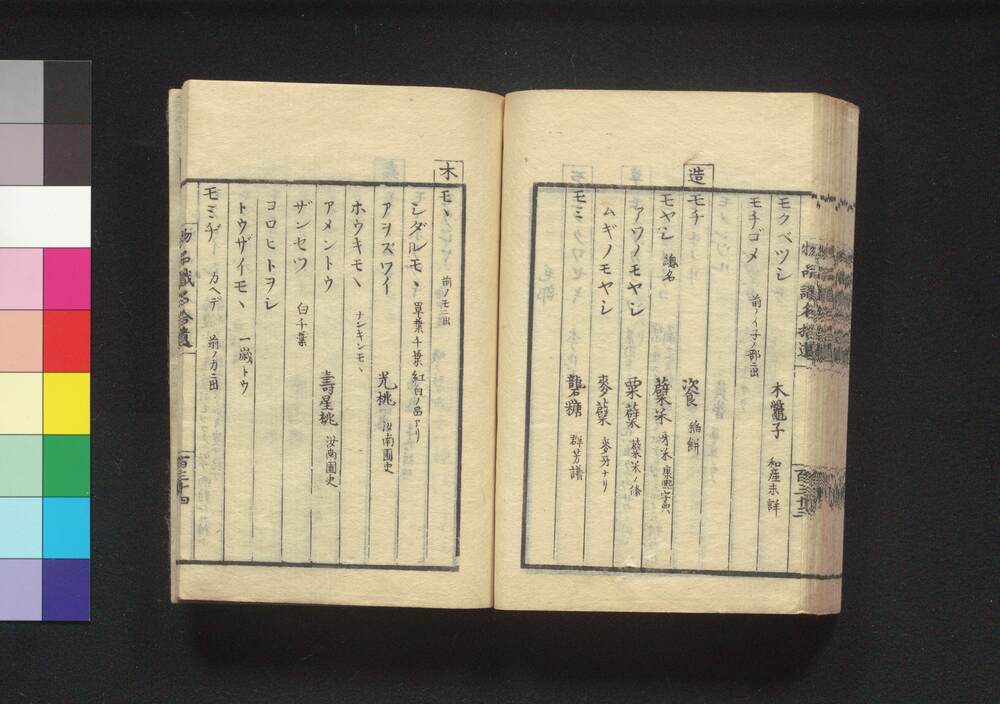 モクベツシ 木鼈子 和産未詳
モチゴメ 前ノイ子ノ部ニ出
造
モチ 餈 稲餅
モヤシ 總名 糵米 牙米 康熙字典
アワノモヤシ 粟糵 糵米ノ條
ムギノモヤシ 麥糵 麥牙ナリ
モミクワセキ 礱糖 群芳譜
物品識名拾遺
百三十三
木
モヽ 前ノモニ出
シダルモヽ 單葉千葉紅白ノ品アリ
アヲズワイ 光桃 汝南圃史
ホウキモヽ ナンキンモヽ
アメントウ 壽星桃 汝南圃史
ザンセツ 白千葉
ヨロヒトヲシ
トウザイモヽ 一歳トウ
モミヂ カヘデ 前ノカニ出
物品識名拾遺
百三十四